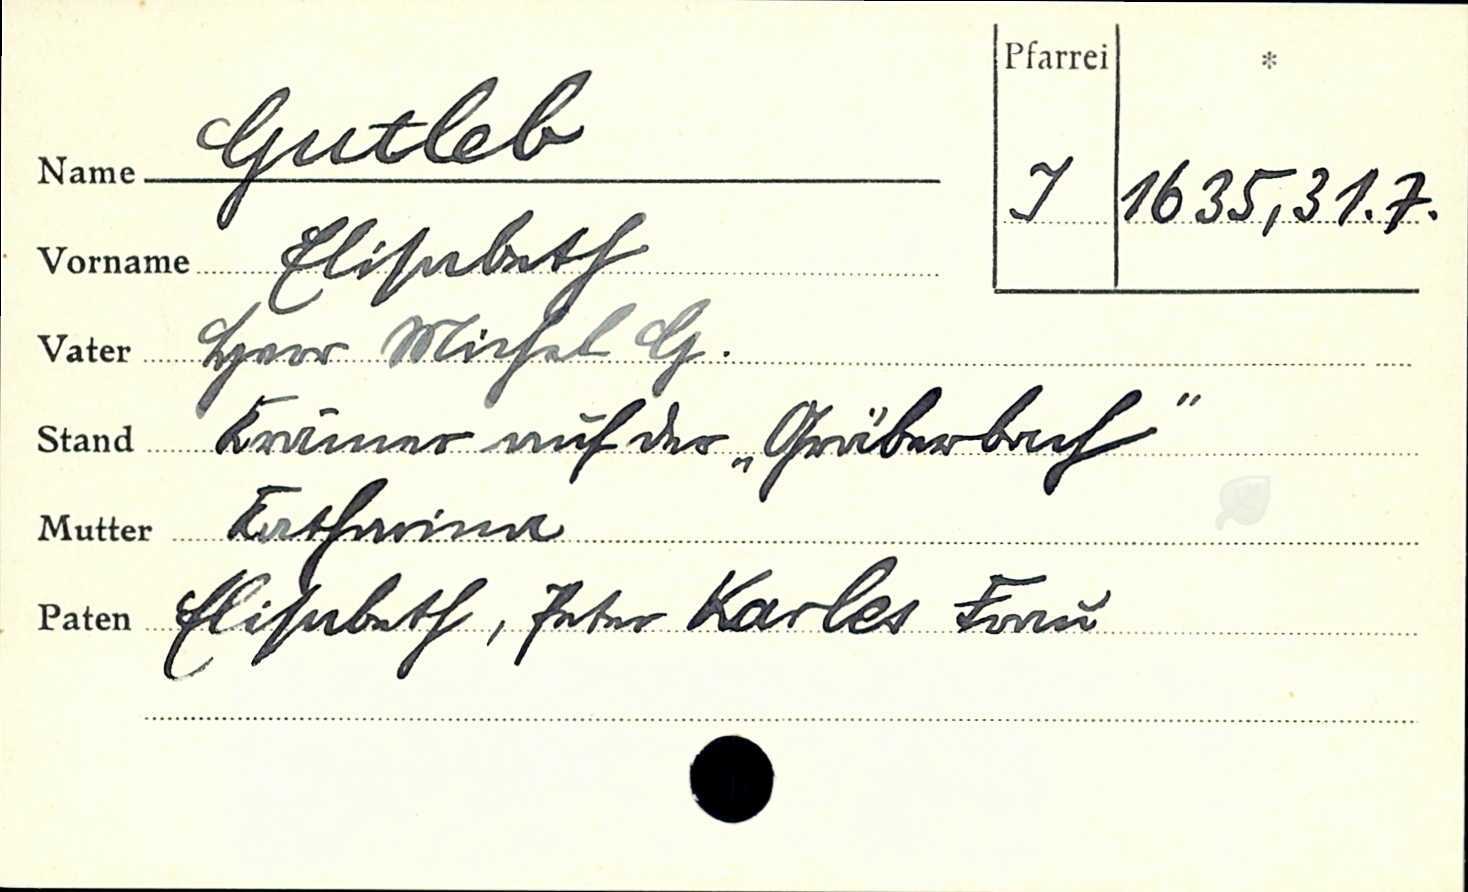 Pfarrei *
Name Gutleb
J 1635, 31. 7.
Vorname Elisabeth
Vater Michel G.
Stand Krämer auf der „Gräberbach"
Mutter Katharina
Paten Elisabeth, Peter Karles Frau